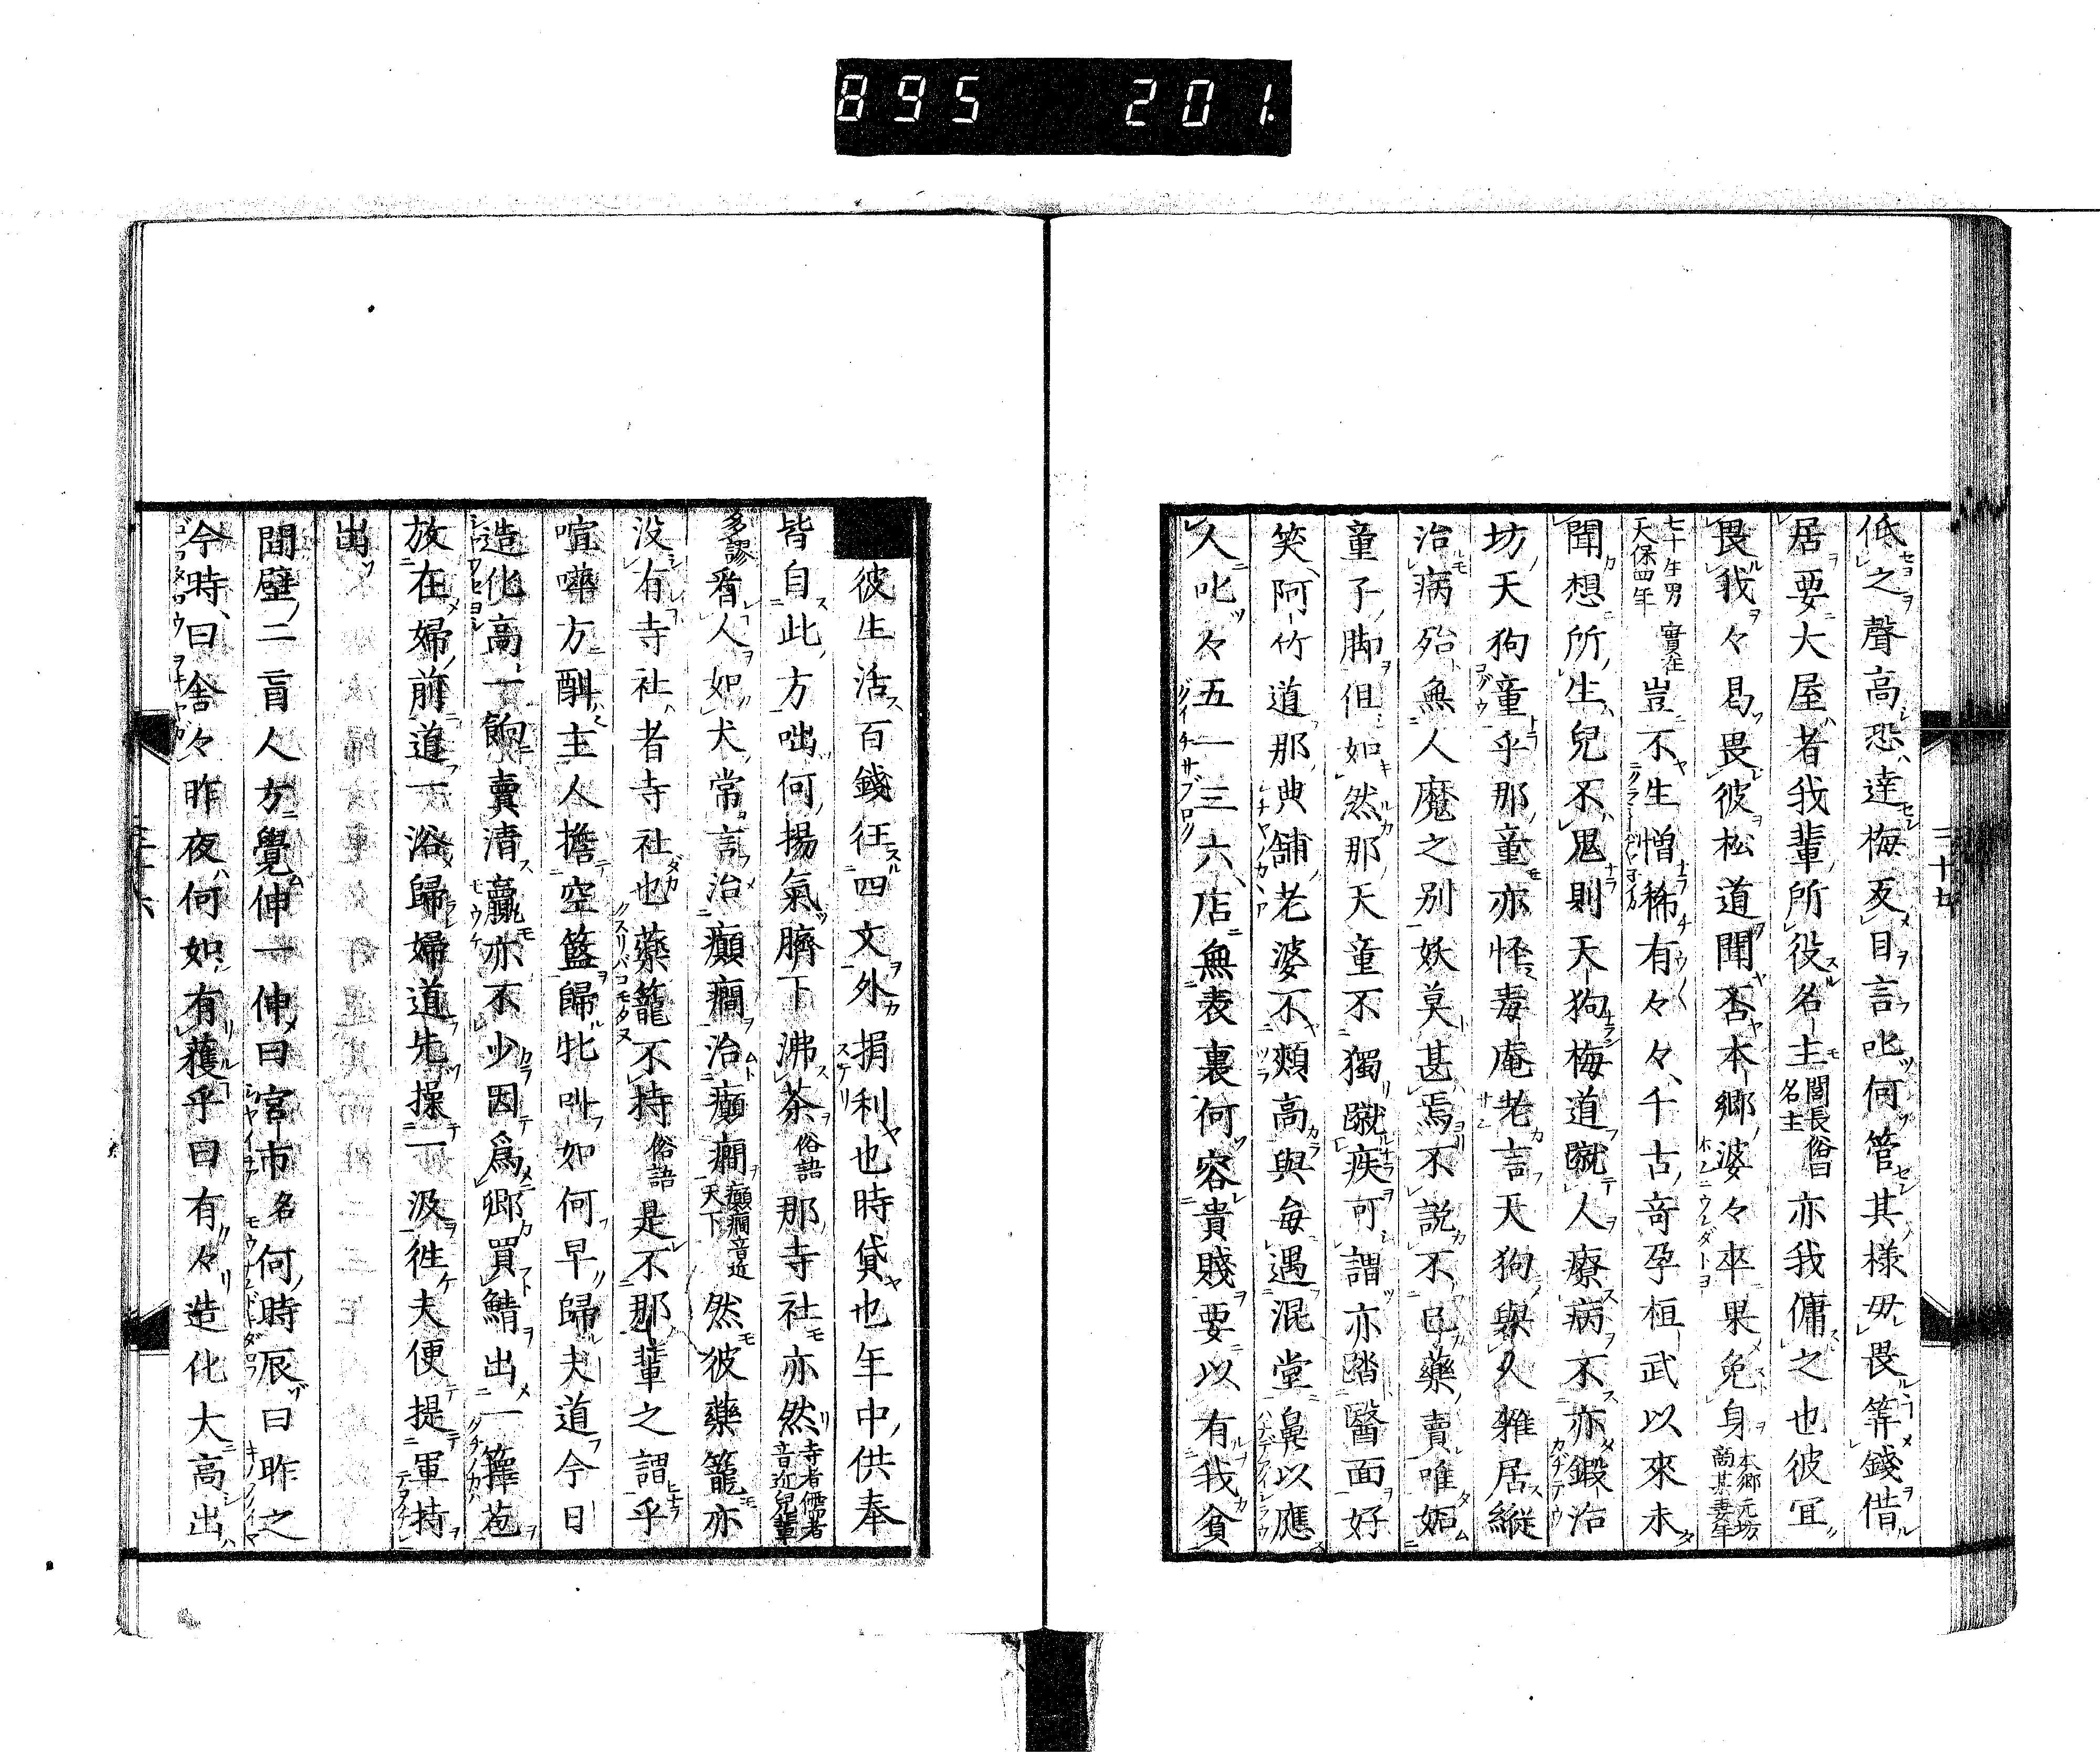 895 201.
低之聲高恐達梅叐目言叱何管其樣毋畏等錢借
居要大屋者我輩所役名主閭長俗曰名主亦我傭之也彼冝
畏我々曷畏彼松道聞否本郷婆々卒果免身本郷元坊商某妻年
七十生男天保四年實在豈不生憎稀有々々千古竒孕桓武以來未
聞想所生兒不鬼則天狗梅道蹴人療病不亦鍛治
坊天狗童乎那童亦怪毒庵老言天狗與人雜居縱
治病殆無人魔之別妖莫甚焉不說不臼藥賣唯妬
童子脚但如然那天童不獨蹴疾可謂亦踏醫面好
笑阿竹道那典舖老婆不頰高與每遇混堂鼻以應
人叱々五一三六店無表裏何容貴賤要以有我貧
三十七
彼生活百錢徃四文外捐利也時貸也年中供奉
皆自此方咄何揚氣臍下沸茶俗語那寺社亦然寺者儒者音近兒輩
多謬看人如犬常言治癲癇治癲癇癲癇音近天下然彼藥籠亦
没有寺社者寺社也藥籠不持俗語是不那輩之謂乎
喧嘩方酣主人擔空籃歸牝叫如何早歸夫道今日
造化高一餉賣清贏亦不少因爲卿買鯖出一籜苞
放在婦前道一浴歸婦道先操一汲徃夫便提軍持
出
間壁二盲人方覺伸一伸曰宮市名何時辰曰昨之
今時曰舍々昨夜何如有穫乎曰有々造化大高出